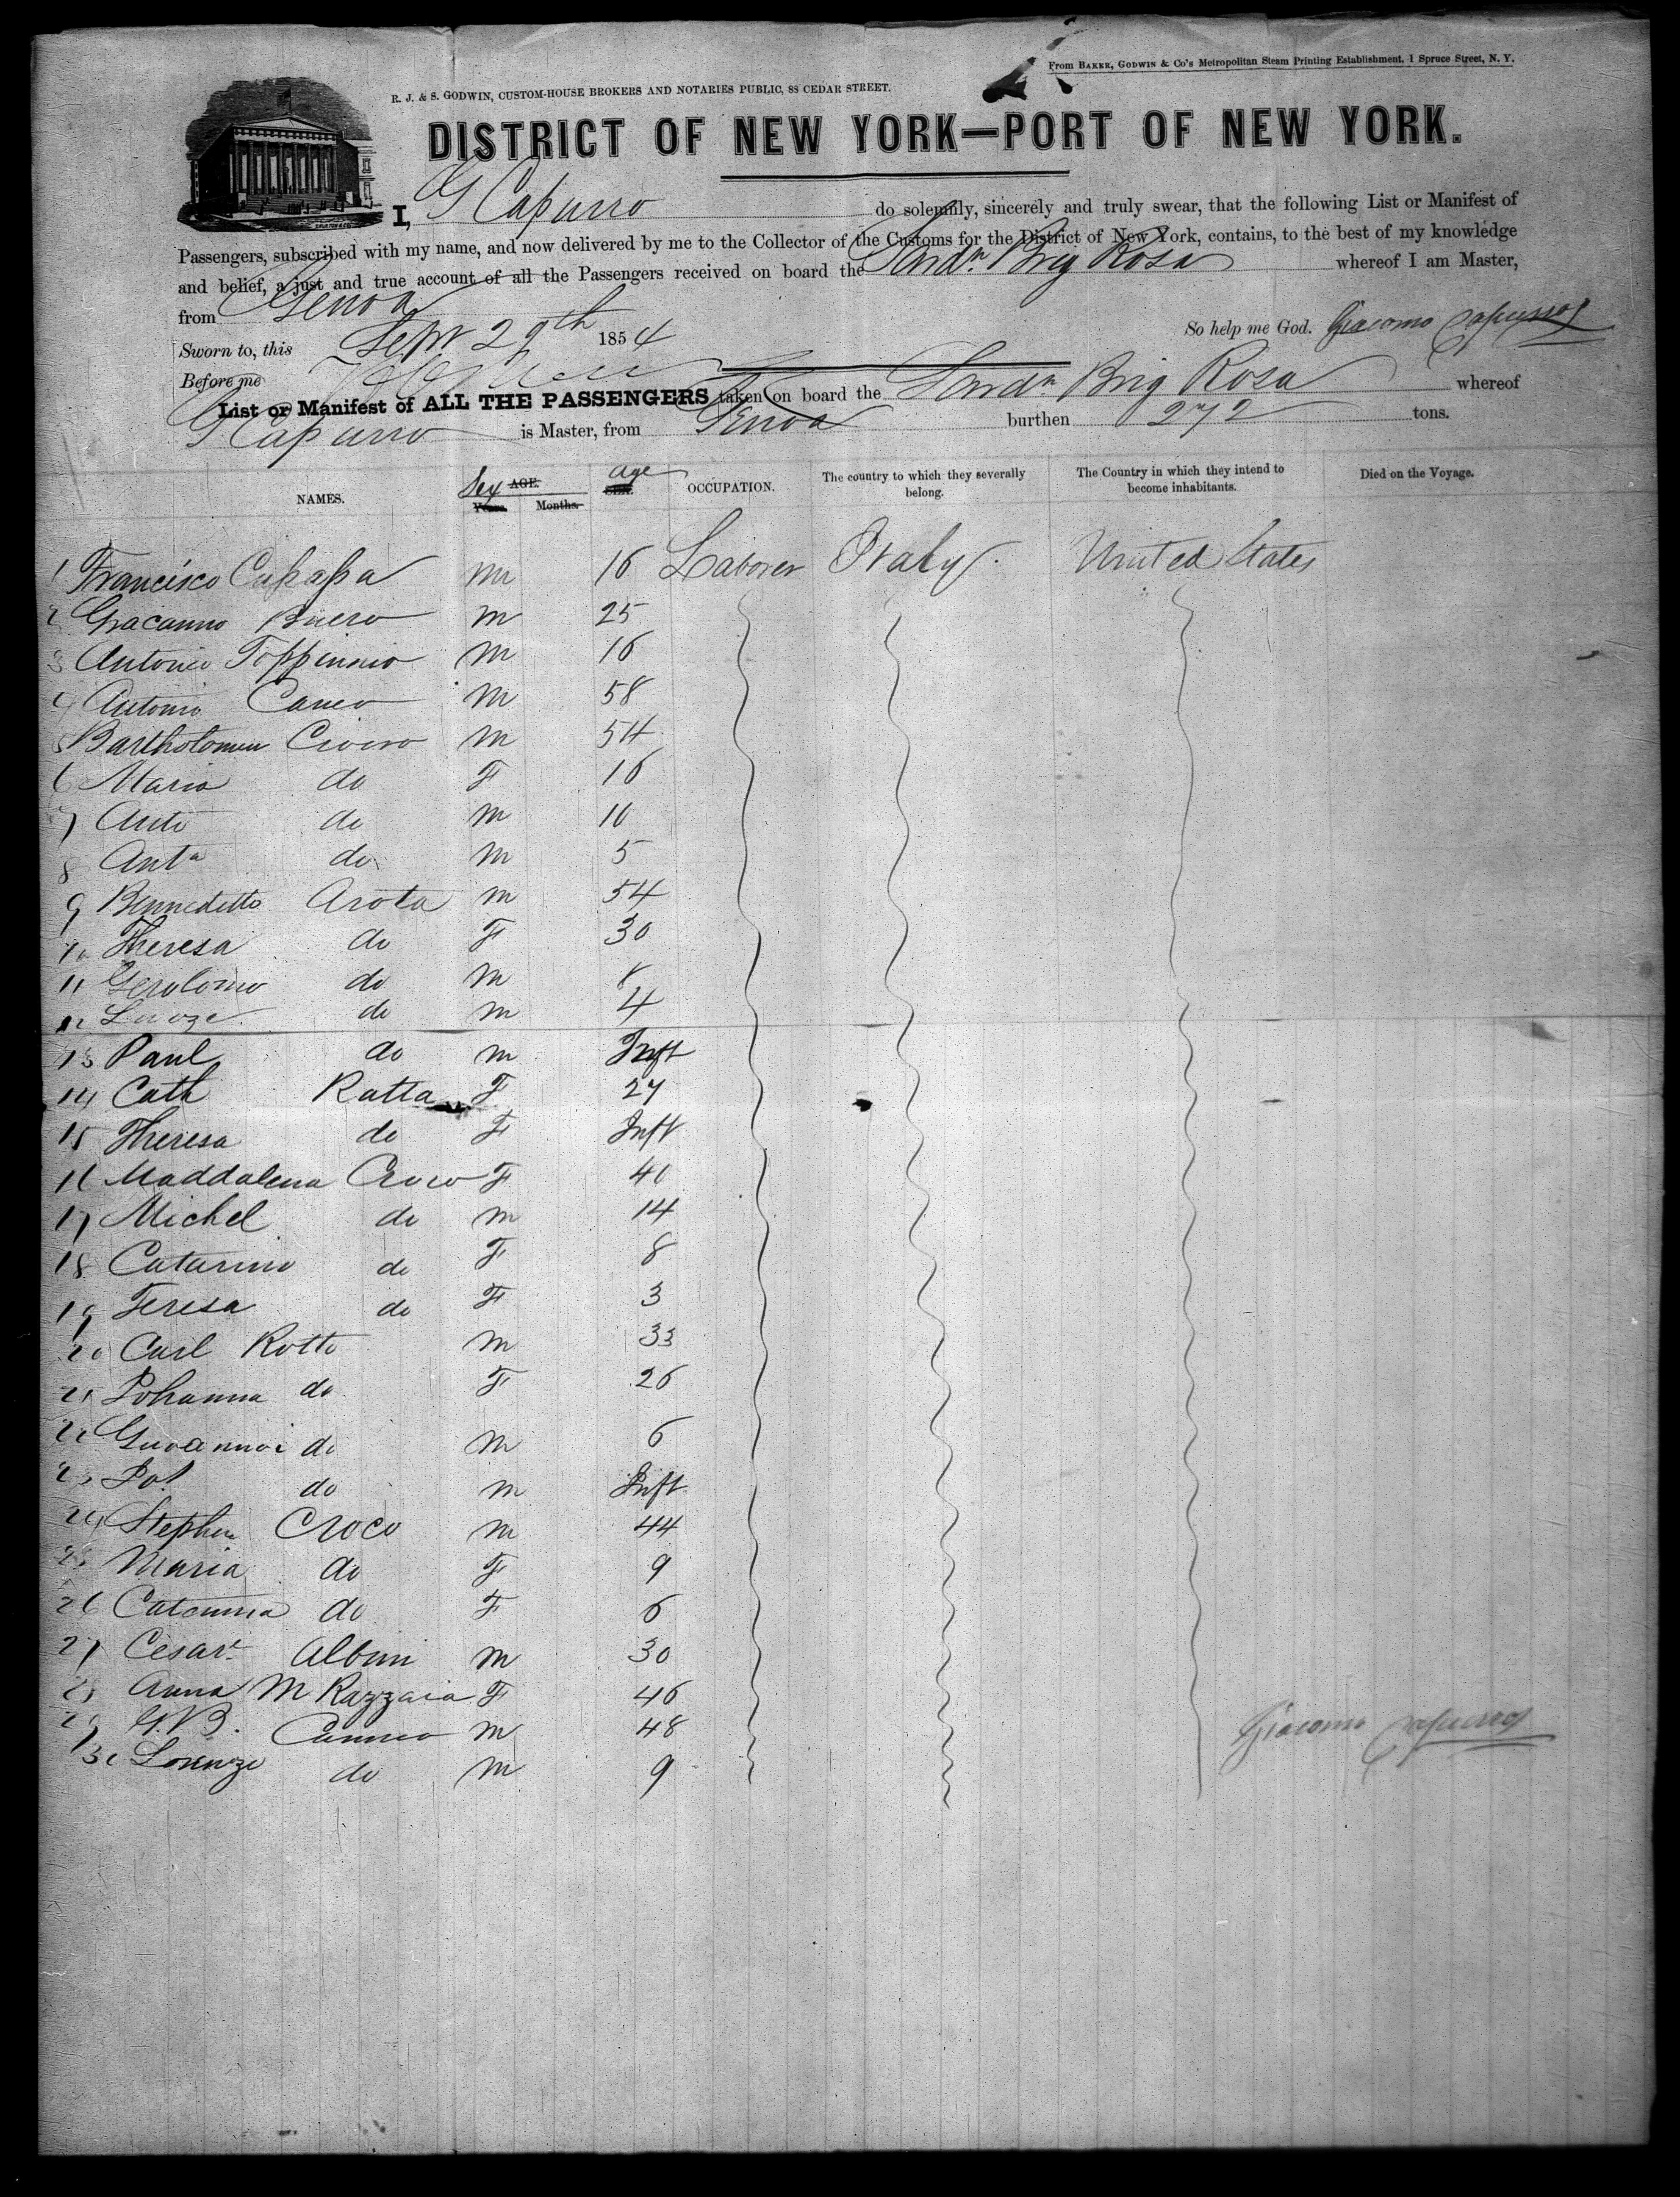 From BAKER, GODWIN & Co's Metropolitan Steam Printing Establishment, 1 Spruce Street, N. Y.
R. J. & S. GODWIN, CUSTOM-HOUSE BROKERS AND NOTARIES PUBLIC, 88 CEDAR STREET.
DISTRICT OF NEW YORK—PORT OF NEW YORK.
I, G Capurro do solemnly, sincerely and truly swear, that the following List or Manifest of
Passengers, subscribed with my name, and now delivered by me to the Collector of the Customs for the District of New York, contains, to the best of my knowledge
and belief, a just and true account of all the Passengers received on board the Sardn Brig Rosa whereof I am Master,
from Genoa
So help me God. Giacomo Capurro
Sworn to, this Sept 29th 1854
Before me
List or Manifest of ALL THE PASSENGERS taken on board the Sardn Brig Rosa whereof
G Capurro is Master, from Genoa burthen 272 tons.
NAMES. Sex AGE. Years. Months. Age SEX. OCCUPATION. The country to which they severally belong. The Country in which they intend to become inhabitants. Died on the Voyage.
1 Francisco m 16 Laborer Italy United States
2 m 25
3 Antonio m 16
4 Antonio Caneo m 58
5 Bartholomew m 54
6 Maria do F 16
7 Anto do m 10
8 Anta do m 5
9 Bennedetto Arota m 54
10 Theresa do F 30
11 Gerolomo do m
12 do m 4
13 Paul do m Inft
14 Cath Ratta F 27
15 Theresa do F Inft
16 Maddalena Croco F 40
17 Michel do m 14
18 Catarina do F 8
19 Teresa do F 3
20 Carl Rotto m 33
21 Johanna do F 26
22 do m 6
23 do m Inft
24 Stephen Croco m 44
25 Maria do F 9
26 do F 6
27 Cesare Albini m 30
28 Anna M Razzaia F 46
29 G. B. Canneo m 48
30 Lorenzo do m 9
Giacomo Capurro